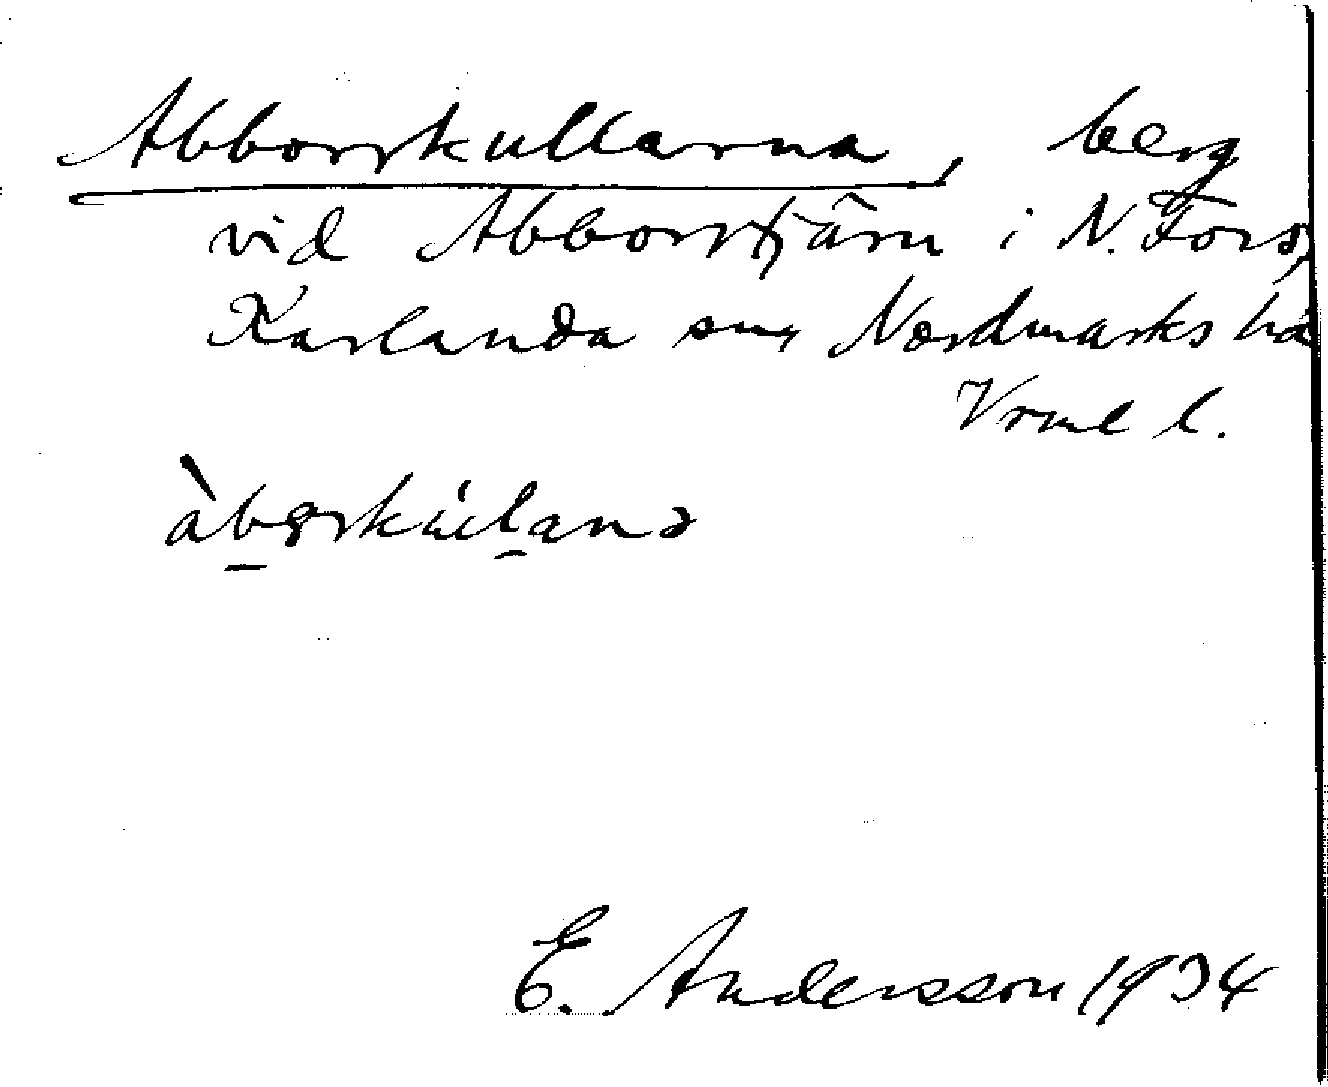 Abborrkullarna, berg
vid Abborrtjärn i N. Fors,
Karlanda sn, Nordmarks hd
Vrml l.
E. Andersson 1934